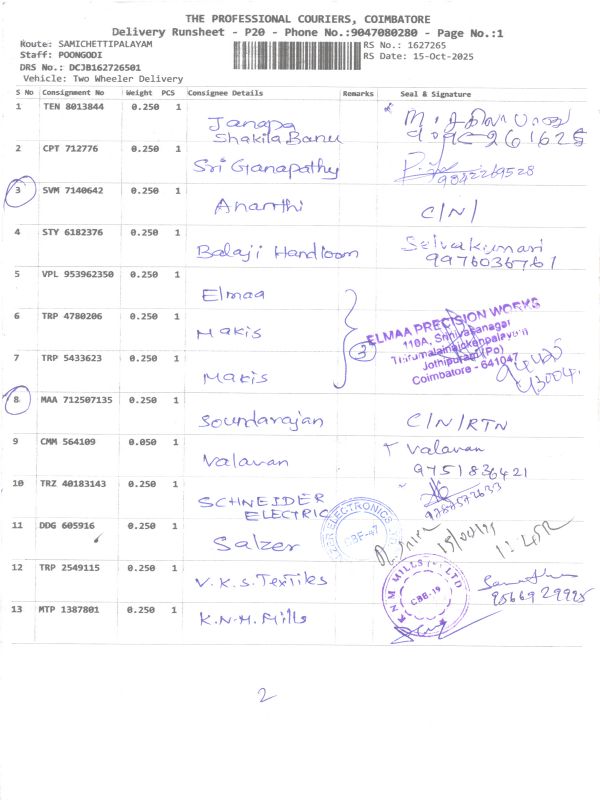 THE PROFESSIONAL COURIERS, COIMBATORE
Delivery Runsheet - P20 - Phone No.:9047080280 - Page No.:1
Route: SAMICHETTIPALAYAM
Staff: POONGODI
DRS No.: DCJB162726501
Vehicle: Two Wheeler Delivery
RS No.: 1627265
RS Date: 15-Oct-2025
S No Consignment No Weight PCS Consignee Details Remarks Seal & Signature
1 TEN 8013844 0.250 1 Janapa
Shakila Banu
261625
2 CPT 712776 0.250 1 Sri Ganapathy 9842269528
3 SVM 7140642 0.250 1 Ananthi C/N/
4 STY 6182376 0.250 1 Balaji Handloom Selvakumari
9976036761
5 VPL 953962350 0.250 1 Elmaa
6 TRP 4780206 0.250 1 Makis
7 TRP 5433623 0.250 1 Makis
3
ELMAA PRECISION WORKS
110A, Srinivasanagar
Thirumalainaickenpalayam
Jothipuram (Po)
Coimbatore - 641047
93004
8 MAA 712507135 0.250 1 Soundarajan C/N/RTN
9 CMM 564109 0.050 1 Valavan T Valavan
9751836421
10 TRZ 40183143 0.250 1 SCHNEIDER
ELECTRIC
11 DDG 605916 0.250 1 Salzer
ELECTRONICS
CBE-47
12 TRP 2549115 0.250 1 V.K.S. Textiles
13 MTP 1387801 0.250 1 K.N.M. Mills
K N M MILLS (P) LTD
CBE-19
9566929925
2